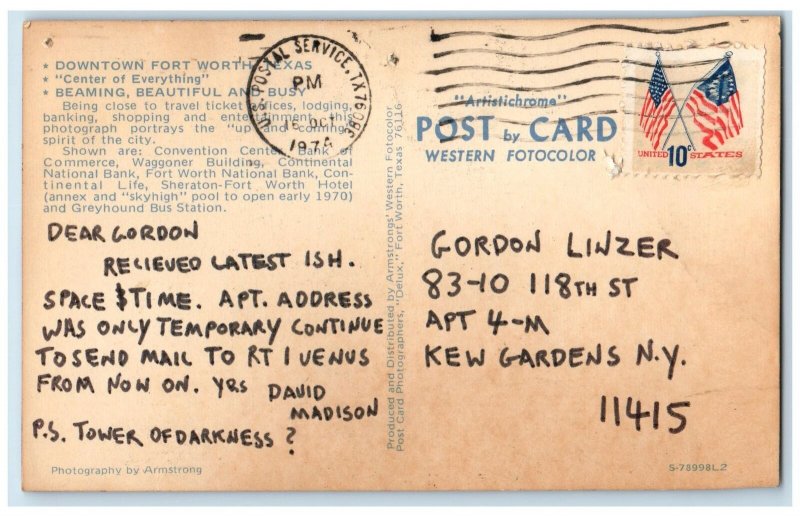 ★ DOWNTOWN FORT WORTH, TEXAS
★ "Center of Everything"
★ BEAMING, BEAUTIFUL AND BUSY
Being close to travel ticket offices, lodging,
banking, shopping and entertainment, this
photograph portrays the "up and coming"
spirit of the city.
Shown are: Convention Center, Bank of
Commerce, Waggoner Building, Continental
National Bank, Fort Worth National Bank, Con-
tinental Life, Sheraton-Fort Worth Hotel
(annex and "skyhigh" pool to open early 1970)
and Greyhound Bus Station.
U.S. POSTAL SERVICE, TX 760
PM
15 OCT
1974
DEAR GORDON
RECIEVED LATEST ISH.
SPACE $ TIME. APT. ADDRESS
WAS ONLY TEMPORARY CONTINUE
TO SEND MAIL TO RT 1 VENUS
FROM NOW ON. YRS DAVID
MADISON
P.S. TOWER OF DARKNESS?
Photography by Armstrong
Produced and Distributed by Armstrongs' Western Fotocolor
Post Card Photographers, "Delux," Fort Worth, Texas 76116
"Artistichrome"
POST by CARD
WESTERN FOTOCOLOR
UNITED 10c STATES
GORDON LINZER
83-10 118TH ST
APT 4-M
KEW GARDENS N.Y.
11415
S-78998L.2